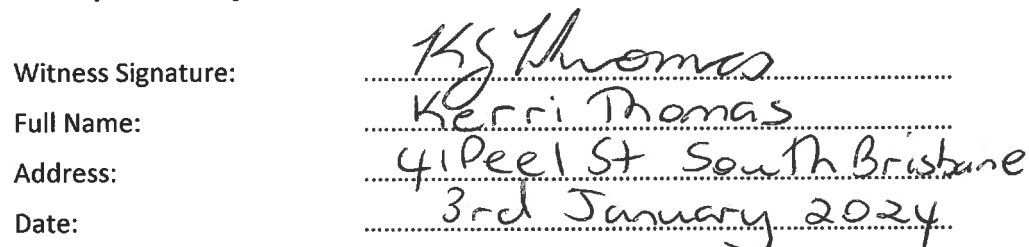 Witness Signature: KJ Thomas
Full Name: Kerri Thomas
Address: 41 Peel St South Brisbane
Date: 3rd January 2024